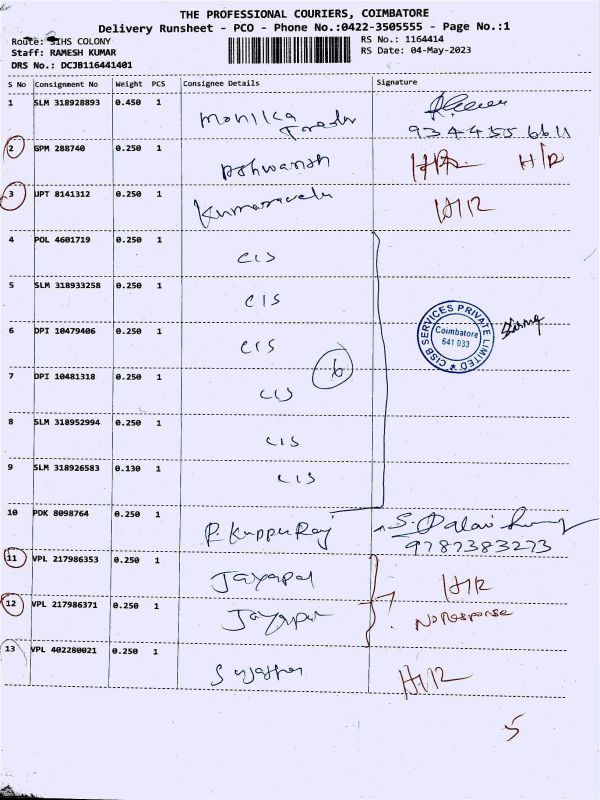 THE PROFESSIONAL COURIERS, COIMBATORE
Delivery Runsheet - PCO - Phone No.:0422-3505555 - Page No.:1
Route: SIHS COLONY
RS No.: 1164414
Staff: RAMESH KUMAR
RS Date: 04-May-2023
DRS No.: DCJB116441401
S No Consignment No Weight PCS Consignee Details Signature
1 SLM 318928893 0.450 1 Monika
2 GPM 288740 0.250 1 Ashwanth H/R H/R
3 UPT 8141312 0.250 1 Kumaravelu H/R
4 POL 4601719 0.250 1 CIS
5 SLM 318933258 0.250 1 CIS
CISB SERVICES PRIVATE LIMITED
Coimbatore
641 033
6 DPI 10479406 0.250 1 CIS
6
7 DPI 10481318 0.250 1 CIS
8 SLM 318952994 0.250 1 CIS
9 SLM 318926583 0.130 1 CIS
10 PDK 8098764 0.250 1 P. KuppuRaj
9787383273
11 VPL 217986353 0.250 1 Jayapal H/R
12 VPL 217986371 0.250 1 No Response
13 VPL 402280021 0.250 1 H/R
5